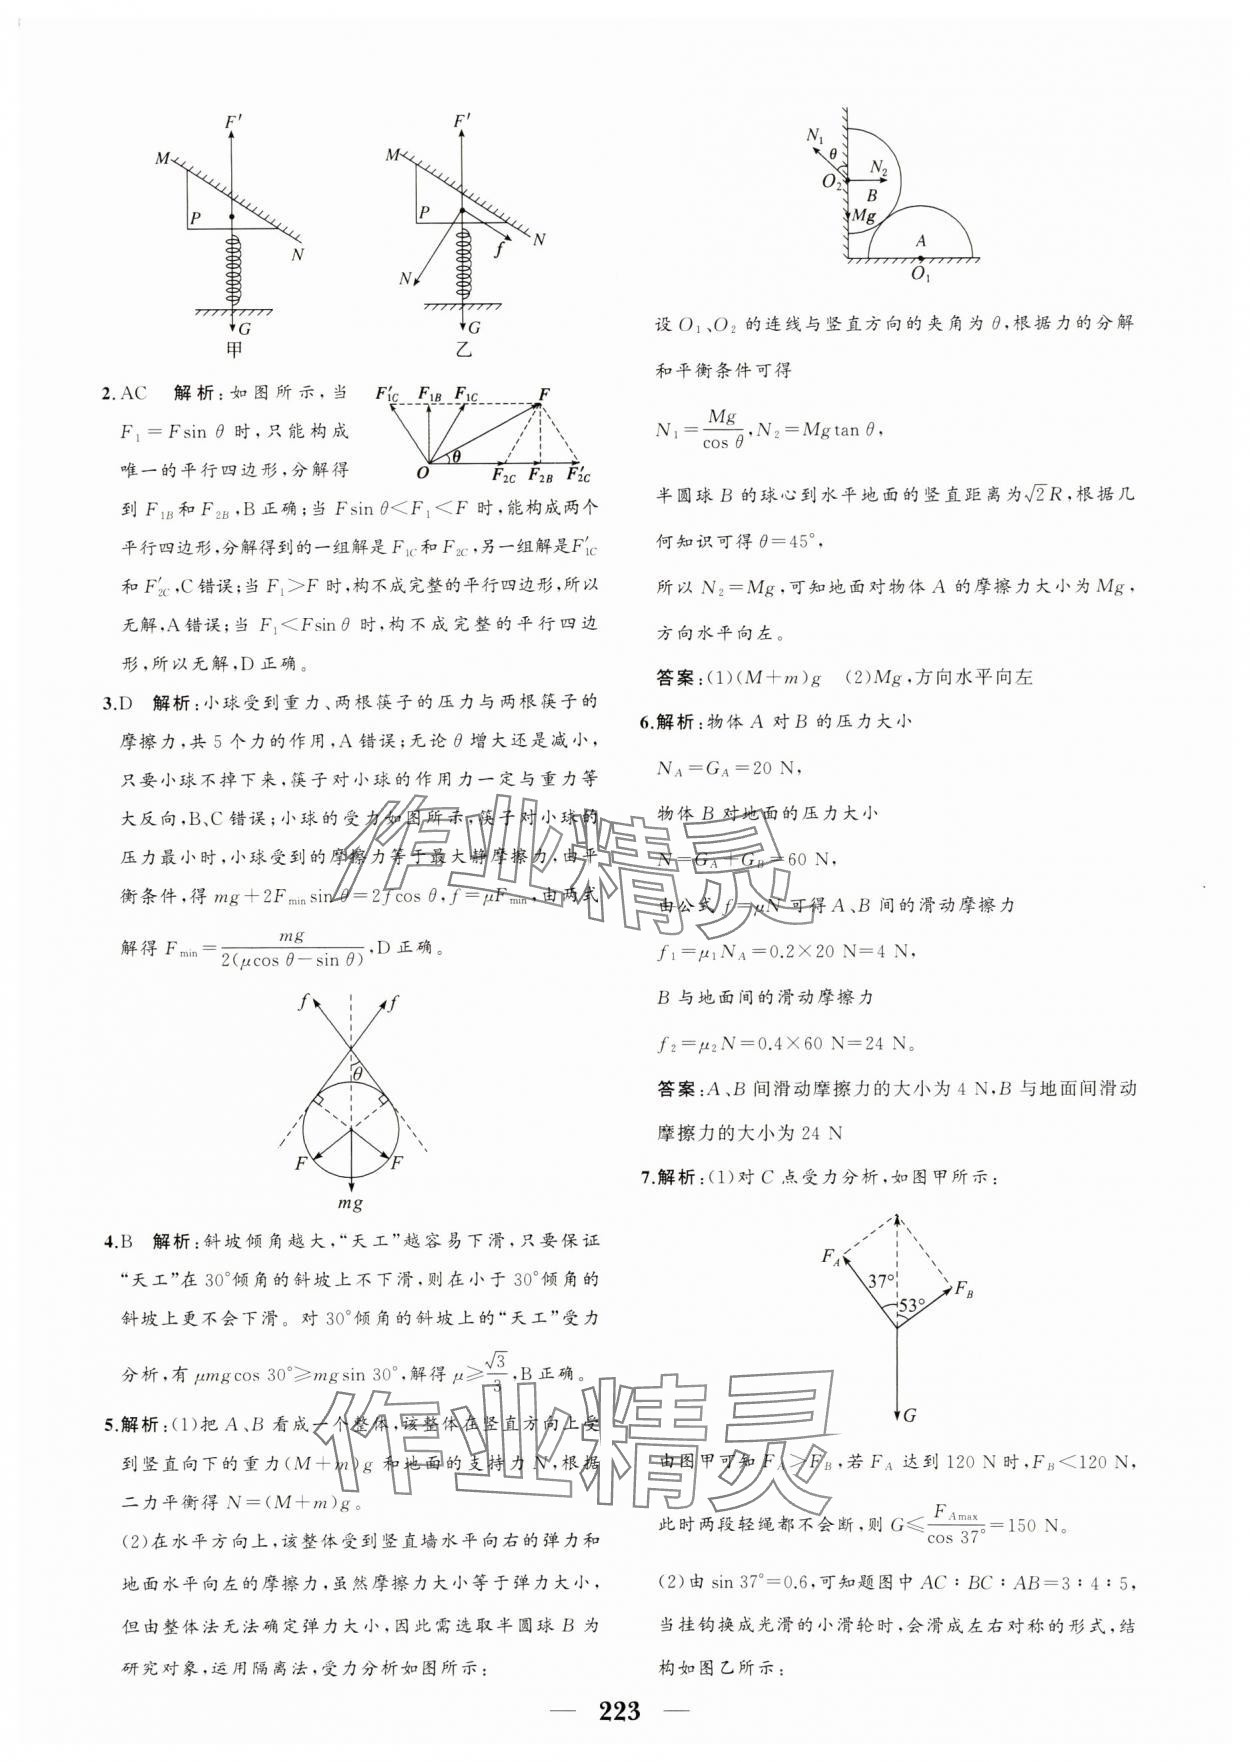 F′
M
P
N
G
甲
F′
M
P
N
f
N
G
乙
2.AC 解析:如图所示,当
F₁=Fsin θ 时,只能构成
唯一的平行四边形,分解得
F′₁C F₁B F₁C F
O θ F₂C F₂B F′₂C
到 F₁B 和 F₂B,B正确;当 Fsin θ<F₁<F 时,能构成两个
平行四边形,分解得到的一组解是 F₁C 和 F₂C,另一组解是 F′₁C
和 F′₂C,C错误;当 F₁>F 时,构不成完整的平行四边形,所以
无解,A错误;当 F₁<Fsin θ 时,构不成完整的平行四边
形,所以无解,D正确。
3.D 解析:小球受到重力、两根筷子的压力与两根筷子的
摩擦力,共 5 个力的作用,A错误;无论 θ 增大还是减小,
只要小球不掉下来,筷子对小球的作用力一定与重力等
大反向,B、C错误;小球的受力如图所示,筷子对小球的
压力最小时,小球受到的摩擦力等于最大静摩擦力,由平
衡条件,得 mg+2Fmin sin θ=2fcos θ,f=μFmin,由两式
解得 Fmin=mg/2(μcos θ−sin θ),D正确。
f f
θ
F F
mg
4.B 解析:斜坡倾角越大,“天工”越容易下滑,只要保证
“天工”在30°倾角的斜坡上不下滑,则在小于30°倾角的
斜坡上更不会下滑。对30°倾角的斜坡上的“天工”受力
分析,有 μmgcos 30°≥mgsin 30°,解得 μ≥√3/3,B正确。
5.解析:(1)把 A、B 看成一个整体,该整体在竖直方向上受
到竖直向下的重力(M+m)g 和地面的支持力 N,根据
二力平衡得 N=(M+m)g。
(2)在水平方向上,该整体受到竖直墙水平向右的弹力和
地面水平向左的摩擦力,虽然摩擦力大小等于弹力大小,
但由整体法无法确定弹力大小,因此需选取半圆球 B 为
研究对象,运用隔离法,受力分析如图所示:
N₁ θ
O₂ N₂
B
Mg
A
O₁
设 O₁、O₂ 的连线与竖直方向的夹角为 θ,根据力的分解
和平衡条件可得
N₁=Mg/cos θ,N₂=Mgtan θ,
半圆球 B 的球心到水平地面的竖直距离为√2R,根据几
何知识可得 θ=45°,
所以 N₂=Mg,可知地面对物体 A 的摩擦力大小为 Mg,
方向水平向左。
答案:(1)(M+m)g (2)Mg,方向水平向左
6.解析:物体 A 对 B 的压力大小
N_A=G_A=20 N,
物体 B 对地面的压力大小
N=G_A+G_B=60 N,
由公式 f=μN 可得 A、B 间的滑动摩擦力
f₁=μ₁N_A=0.2×20 N=4 N,
B 与地面间的滑动摩擦力
f₂=μ₂N=0.4×60 N=24 N。
答案:A、B 间滑动摩擦力的大小为 4 N,B 与地面间滑动
摩擦力的大小为 24 N
7.解析:(1)对 C 点受力分析,如图甲所示:
F_A
37°
53°
F_B
G
由图甲可知 F_A>F_B,若 F_A 达到 120 N 时,F_B<120 N,
此时两段轻绳都不会断,则 G≤F_Amax/cos 37°=150 N。
(2)由 sin 37°=0.6,可知题图中 AC∶BC∶AB=3∶4∶5,
当挂钩换成光滑的小滑轮时,会滑成左右对称的形式,结
构如图乙所示:
作业精灵
作业精灵
— 223 —